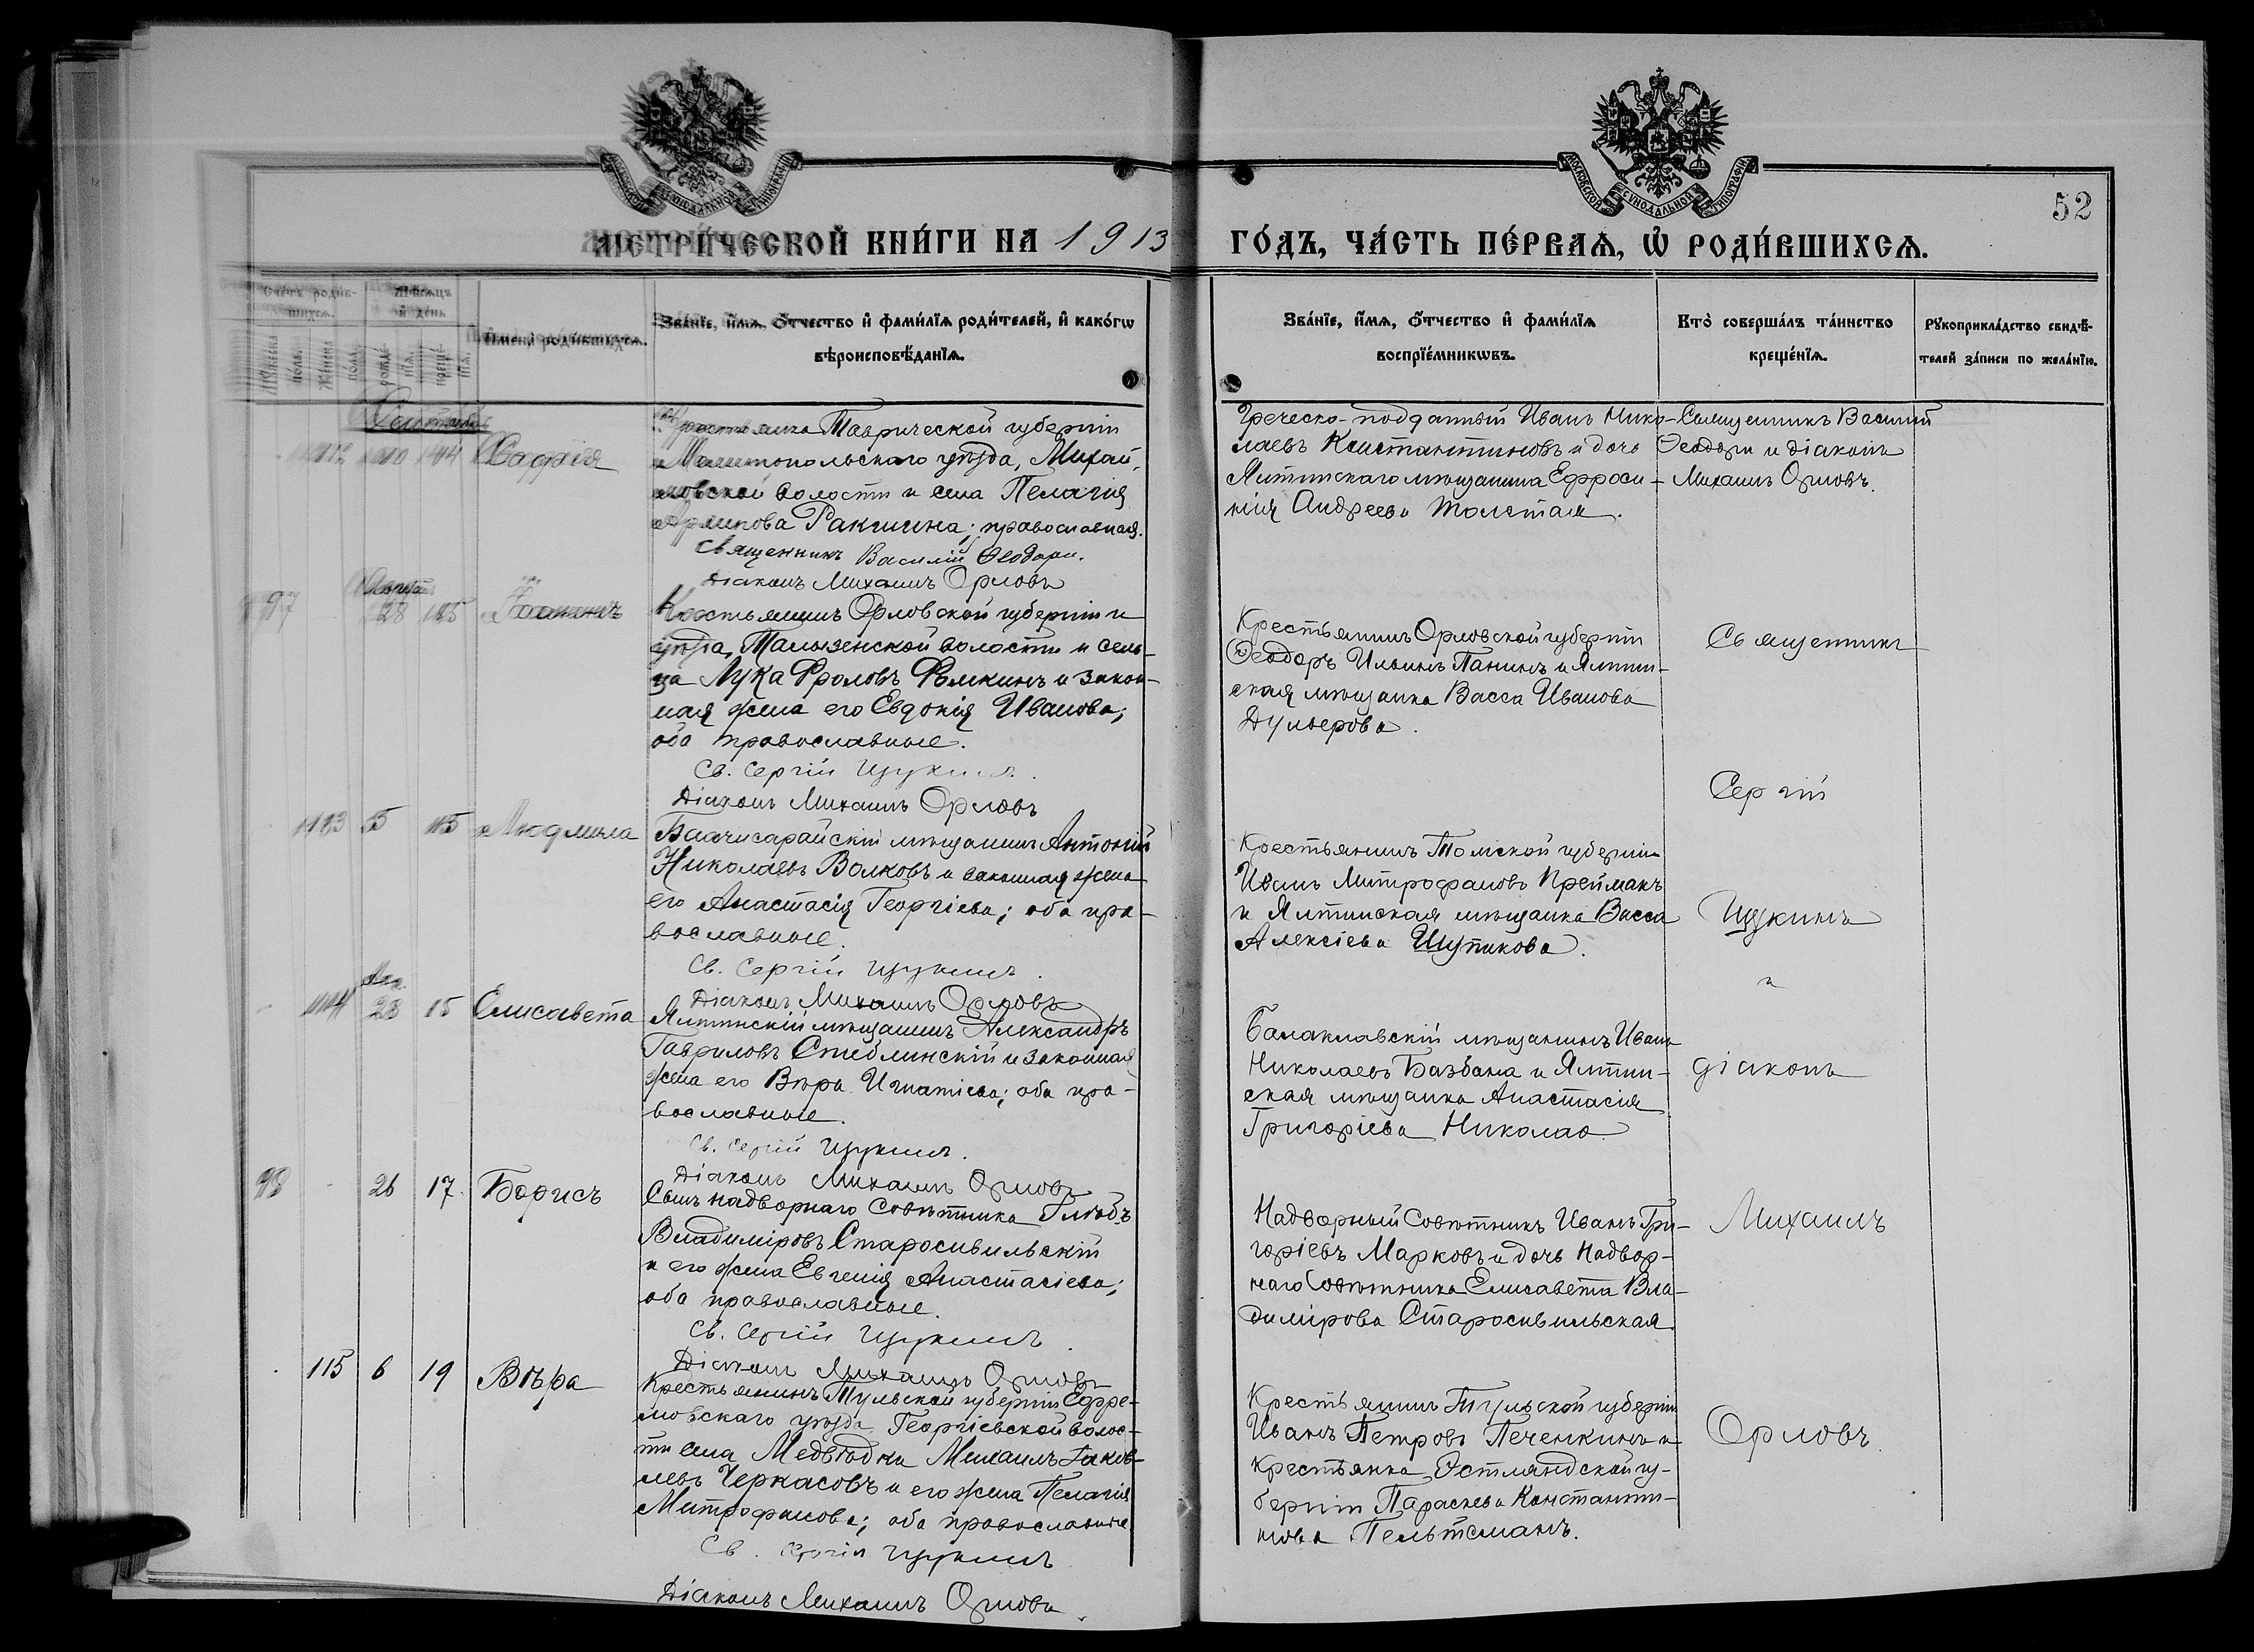 МОСКОВСКОЙ СѴНОДАЛЬНОЙ ТИПОГРАФІИ
52
МЕТРИ́ЧЕСКОЙ КНИ́ГИ НА 1913 ГО́ДЪ, ЧА́СТЬ ПЕ́РВАѦ, Ѡ҆ РОДИ́ВШИХСѦ.
Сче́тъ роди́вшихсѧ.
Мѣ́сѧцъ и҆ де́нь.
Мꙋ́жеска по́ла.
Же́нска по́ла.
рожде́нїѧ.
креще́нїѧ.
И҆мена̀ роди́вшихсѧ.
Зва́нїе, и҆́мѧ, ѻ҆́тчество и҆ фами́лїѧ роди́телей, и҆ како́гѡ
вѣроисповѣ́данїѧ.
Зва́нїе, и҆́мѧ, ѻ҆́тчество и҆ фами́лїѧ
воспрїе́мникѡвъ.
Кто̀ соверша́лъ та́инство
креще́нїѧ.
Рꙋкоприкла́дство свидѣ́-
телей за́писи по жела́нїю.
Сентябрь
112 10 14 Софія
Крестьянка Таврической губерніи
Мелитопольскаго уѣзда, Михай-
ловской волости и села Пелагія
Ракшина; православная.
Священникъ Василій Ѳеодори.
Діаконъ Михаилъ Орловъ
Греческо-подданный Иванъ Нико-
лаевъ Константиновъ и дочь
Ялтинскаго мѣщанина Ефроси-
нія Андреева Толстая.
Священникъ Василій
Ѳеодори и діаконъ
Михаилъ Орловъ.
Августъ
97 28 15 Іоаннъ
Крестьянинъ Орловской губерніи и
уѣзда, Талызенской волости и сель-
ца Лука Фроловъ Ѳомкинъ и закон-
ная жена его Евдокія Иванова;
оба православные.
Св. Сергій Щукинъ.
Діаконъ Михаилъ Орловъ
Крестьянинъ Орловской губерніи
Ѳеодоръ Ильинъ Панинъ и Ялтин-
ская мѣщанка Васса Иванова
Дульерова.
Священникъ
Сергій
Щукинъ
и
діаконъ
Михаилъ
Орловъ.
113 5 15 Людмила
Бахчисарайскій мѣщанинъ Антоній
Николаевъ Волковъ и законная жена
его Анастасія Георгіева; оба пра-
вославные.
Св. Сергій Щукинъ.
Діаконъ Михаилъ Орловъ
Крестьянинъ Томской губерніи
Иванъ Митрофановъ Прейманъ
и Ялтинская мѣщанка Васса
Алексіева Шутикова.
114 28 15 Елисавета
Ялтинскій мѣщанинъ Александръ
Гавриловъ Стеблинскій и законная
жена его Вѣра Игнатіева; оба пра-
вославные.
Св. Сергій Щукинъ.
Діаконъ Михаилъ Орловъ
Балаклавскій мѣщанинъ Иванъ
Николаевъ Базбана и Ялтин-
ская мѣщанка Анастасія
Григоріева Николао.
98 26 17 Борисъ
Сынъ надворнаго совѣтника Глѣбъ
Владиміровъ Старосивильскій
и его жена Евгенія Анастасіева;
оба православные.
Св. Сергій Щукинъ.
Діаконъ Михаилъ Орловъ
Надворный Совѣтникъ Иванъ Гри-
горіевъ Марковъ и дочь Надвор-
наго Совѣтника Елисавета Вла-
димірова Старосивильская.
115 6 19 Вѣра
Крестьянинъ Тульской губерніи Ефре-
мовскаго уѣзда Георгіевской волос-
ти села Медвѣдки Михаилъ Іаков-
левъ Черкасовъ и его жена Пелагія
Митрофанова; оба православные
Св. Сергій Щукинъ
Діаконъ Михаилъ Орловъ.
Крестьянинъ Тульской губерніи
Иванъ Петровъ Печенкинъ и
крестьянка Эстляндской гу-
берніи Параскева Константи-
нова Пельтсманъ.